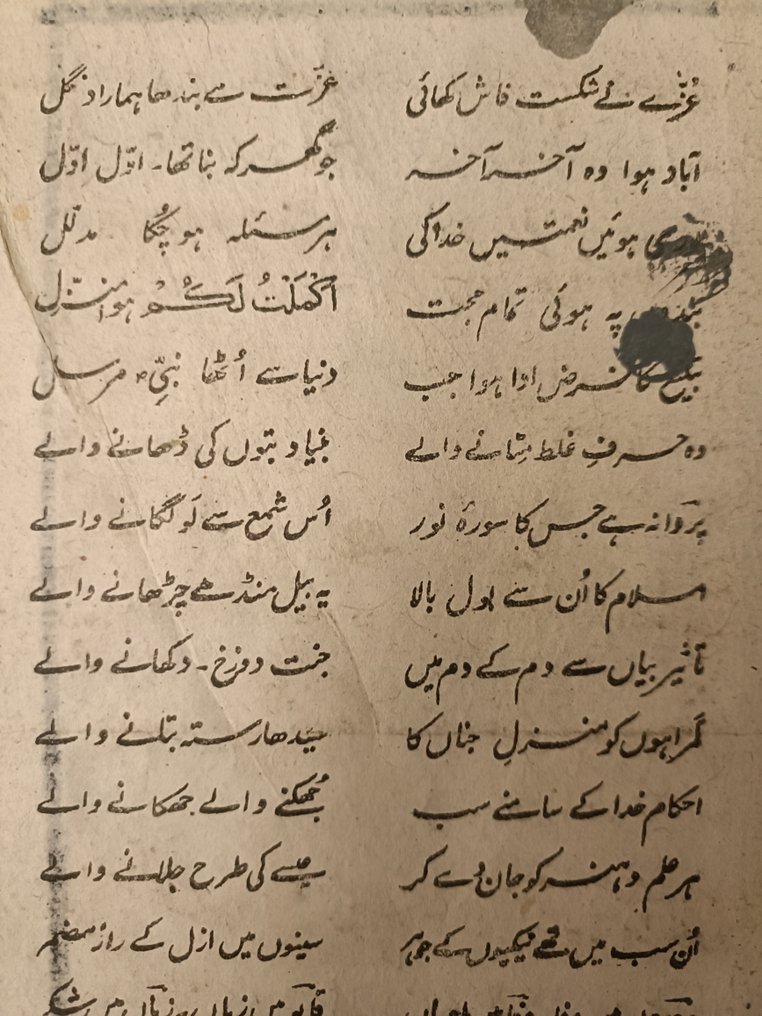 عُزّےٰ نے شکست فاش کھائی عزّت سے بندھا ہمارا دنگل
آباد ہوا وہ آخر آخر جو گھر کہ بنا تھا۔ اوّل اوّل
ہوئیں نعمتیں خدا کی ہر مسئلہ ہو چُکا مدلّل
پہ ہوئی تمام حجت اَکْمَلْتُ لَکُمْ ہوا منزّل
تبلیغ کا فرض ادا ہوا جب دنیا سے اُٹھا نبیِّ مرسل
وہ حرفِ غلط مِٹانے والے بنیاد بتوں کی ڈھانے والے
پروانہ ہے جس کا سورۂ نور اُس شمع سے لَو لگانے والے
اسلام کا اُن سے بول بالا یہ بیل منڈھے چڑھانے والے
تاثیر بیاں سے دم کے دم میں جنت دوزخ۔ دکھانے والے
گمراہوں کو منزلِ جناں کا سیدھا رستہ بتانے والے
احکام خدا کے سامنے سب جُھکنے والے جھکانے والے
ہر علم و ہنر کو جان دے کر عیسےٰ کی طرح جلانے والے
اُن سب میں تھے نیکیوں کے جوہر سینوں میں ازل کے راز مضمر